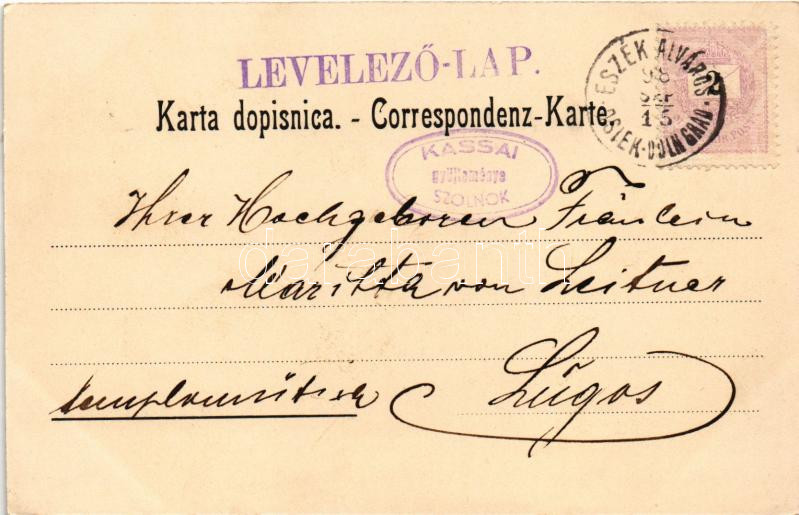 LEVELEZŐ-LAP.
Karta dopisnica. - Correspondenz-Karte.
ESZÉK ALVÁROS
98
SZEP
15
OSIEK-DOLN GRAD
2
KASSAI
gyűjteménye
SZOLNOK
Ihrer Hochgeboren Fräulein
Maritta von Leitner
darabanth
Lúgos
templom útcza